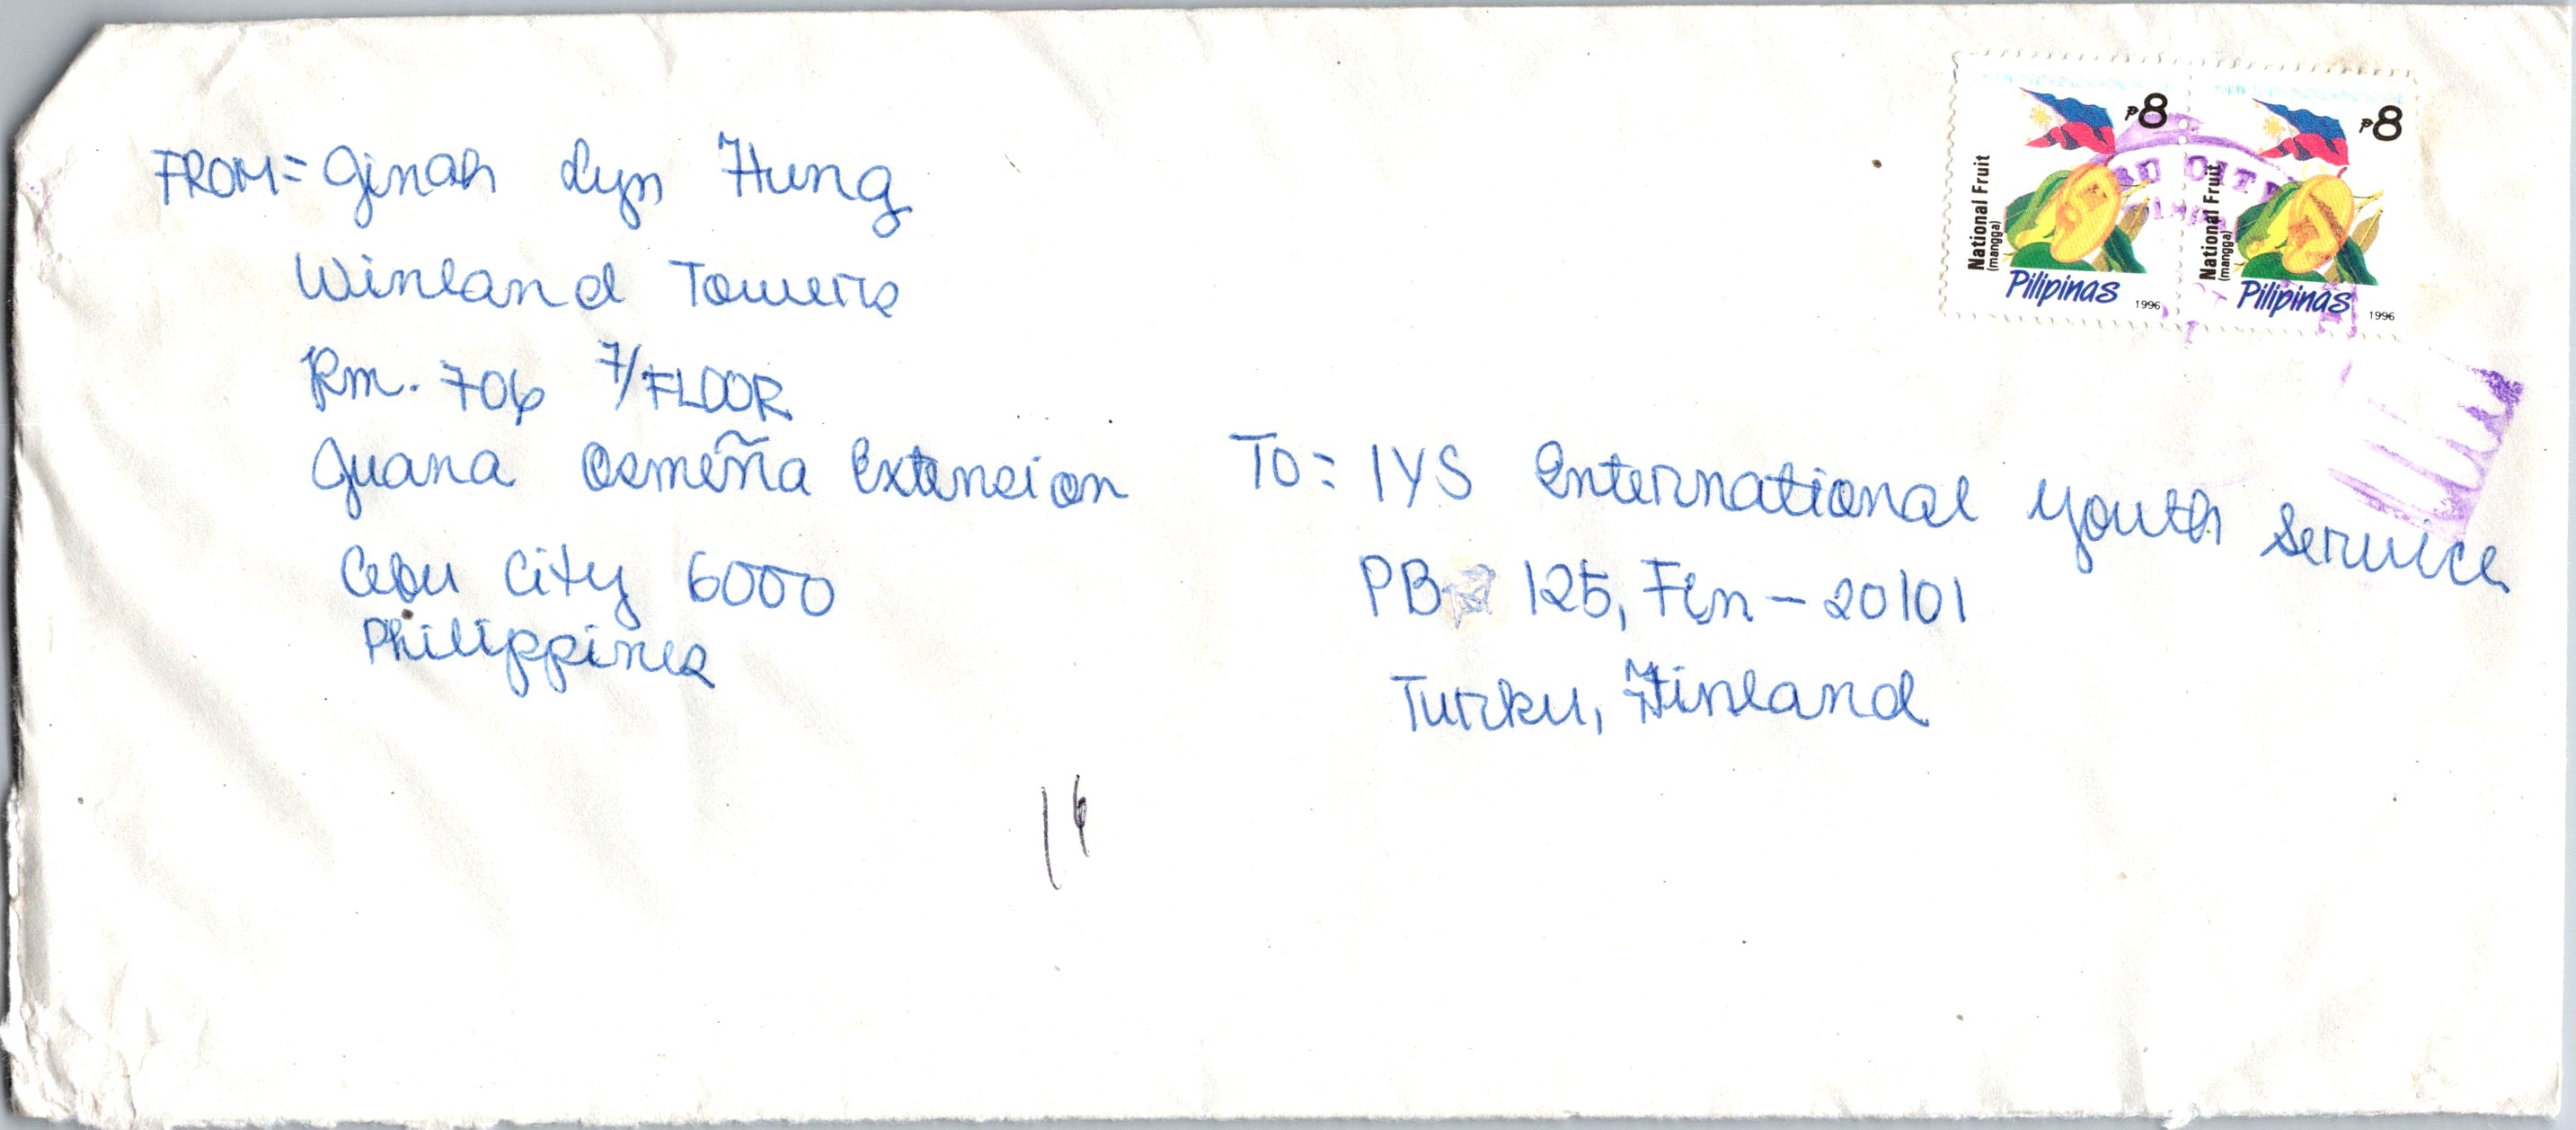 FROM= Ginah Lyn Hung
Winland Towers
Rm. 706 7/FLOOR
Juana Osmeña Extension
Cebu City 6000
Philippines
₱8
National Fruit
(mangga)
Pilipinas
1996
₱8
National Fruit
(mangga)
Pilipinas
1996
CITY
TO= IYS International Youth Service
PB 125, Fin-20101
Turku, Finland
16